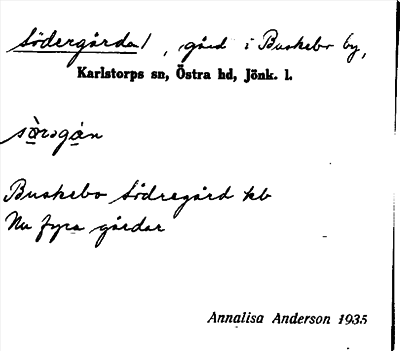 Södergårda/, gård i Buskebo by,
Karlstorps sn, Östra hd, Jönk. l.
sò̱rsgá̱n
Buskebo Södregård kb
Nu fyra gårdar
Annalisa Anderson 1935